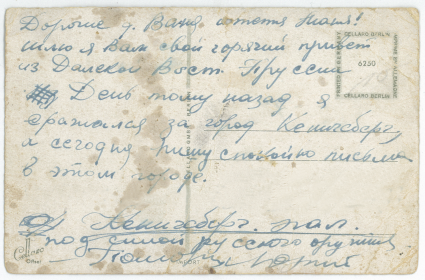 Дорогие д. Ваня и тетя Таня!
шлю я Вам свой горячий привет
из Далекой Вост. Пруссии
День тому назад я
сражался за город Кенигсберг,
а сегодня пишу спокойно письма
в этом городе.
Кенигсберг пал.
под силой русского оружия
CELLARO BERLIN
6250
CELLARO BERLIN
Cellaro